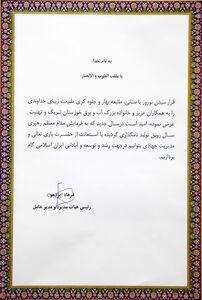 به نام خدا
یا مقلب القلوب و الابصار
فرا رسیدن نوروز باستانی، طلیعه بهار و جلوه گری طبیعت زیبای خداوندی
را به همکاران عزیز و خانواده بزرگ آب و برق خوزستان تبریک و تهنیت
عرض نموده، امید است درسال جدید که به فرمایش مقام معظم رهبری
سال رونق تولید نامگذاری گردیده با استعانت از حضرت باری تعالی و
مدیریت جهادی بتوانیم درجهت رشد و توسعه و آبادانی ایران اسلامی گام
برداریم.
فرهاد
رئیس هیات مدیره و مدیر عامل